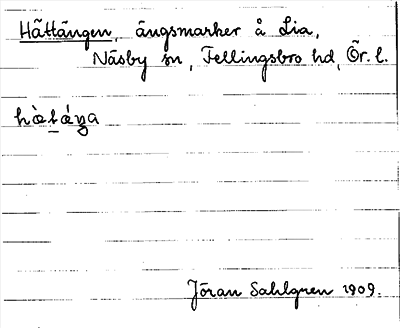 Hättängen, ängsmarker å Lia,
Näsby sn, Fellingsbro hd, Ör. l.
hàtáŋa
Jöran Sahlgren 1909.